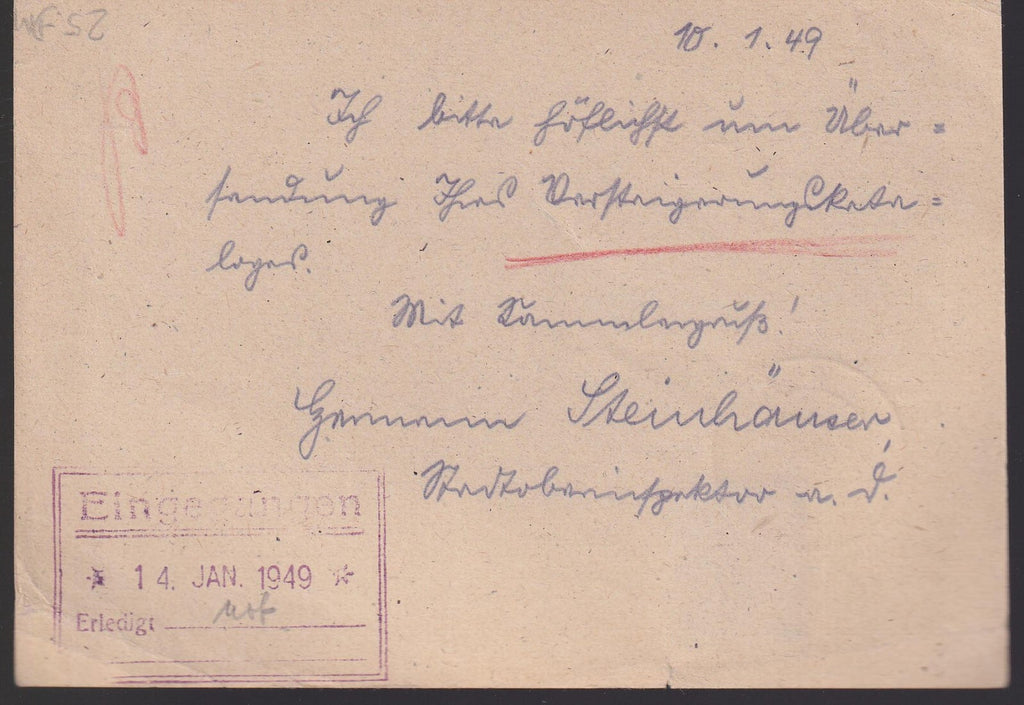 10. 1. 49
Ich bitte höflichst um Über=
sendung Ihres Versteigerungskata=
loges.
Mit Sammlergruß!
Hermann Steinhäuser,
Stadtoberinspektor a. D.
Eingegangen
14. JAN. 1949
Erledigt